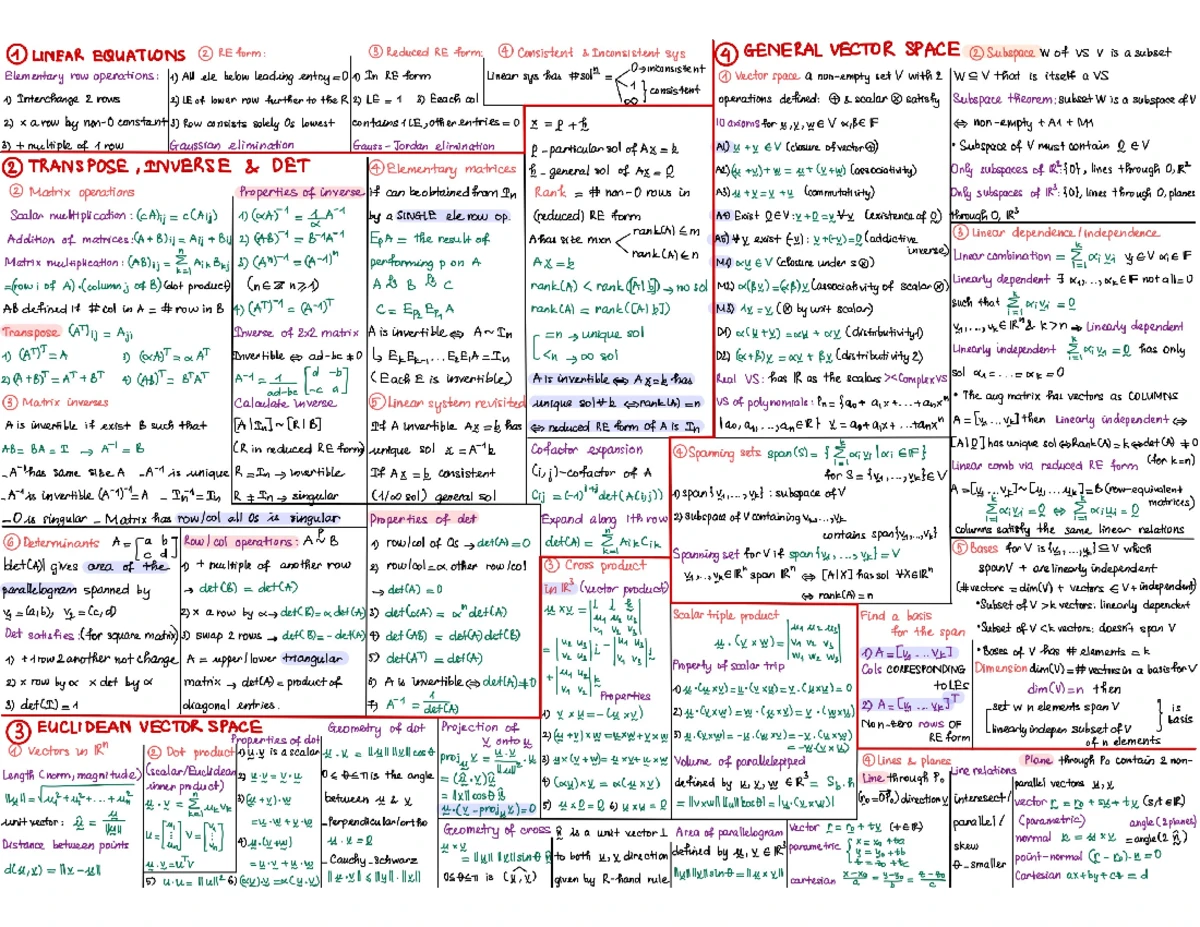 ① LINEAR EQUATIONS
Elementary row operations:
1) Interchange 2 rows
2) × a row by non-0 constant
3) + multiple of 1 row
② RE form:
1) All ele below leading entry = 0
2) LE of lower row further to the R
3) Row consists solely 0s lowest
Gaussian elimination
③ Reduced RE form:
1) In RE form
2) LE = 1 3) Each col
contains 1 LE, other entries = 0
Gauss-Jordan elimination
④ Consistent & Inconsistent sys
Linear sys has # solⁿ =
0 → inconsistent
1
∞
consistent
② TRANSPOSE, INVERSE & DET
② Matrix operations
Scalar multiplication: (cA)ij = c(Aij)
Addition of matrices: (A + B)ij = Aij + Bij
Matrix multiplication: (AB)ij = Σ Aik Bkj
= (row i of A)·(column j of B) (dot product)
AB defined if # col in A = # row in B
Transpose (Aᵀ)ij = Aji
1) (Aᵀ)ᵀ = A 3) (αA)ᵀ = αAᵀ
2) (A + B)ᵀ = Aᵀ + Bᵀ 4) (AB)ᵀ = BᵀAᵀ
③ Matrix inverses
A is invertible if exist B such that
AB = BA = I → A⁻¹ = B
_A⁻¹ has same size A _A⁻¹ is unique
_A⁻¹ is invertible (A⁻¹)⁻¹ = A _In⁻¹ = In
_O is singular _Matrix has row/col all 0s is singular
Properties of inverse
1) (αA)⁻¹ = 1/α A⁻¹
2) (AB)⁻¹ = B⁻¹A⁻¹
3) (Aⁿ)⁻¹ = (A⁻¹)ⁿ
(n ∈ Z n ≥ 1)
4) (Aᵀ)⁻¹ = (A⁻¹)ᵀ
Inverse of 2x2 matrix
Invertible ⇔ ad-bc ≠ 0
A⁻¹ = 1/(ad-bc) [d -b; -c a]
Calculate inverse
[A | In] ~ [R | B]
(R in reduced RE form)
R = In → invertible
R ≠ In → singular
④ Elementary matrices
if can be obtained from In
by a SINGLE ele row op.
EpA = the result of
performing p on A
A B C
A is invertible ⇔ A ~ In
↳ EkEk-1...E2E1A = In
(Each E is invertible)
⑤ Linear system revisited
If A invertible Ax = b has
unique sol x = A⁻¹b
If Ax = b consistent
(1/∞ sol) general sol
x = p + h
p - particular sol of Ax = b
h - general sol of Ax = 0
Rank = # non-0 rows in
(reduced) RE form
A has size mxn
rank(A) ≤ m
rank(A) ≤ n
Ax = b
rank(A) < rank([A|b]) → no sol
rank(A) = rank([A|b])
= n → unique sol
< n → ∞ sol
A is invertible ⇔ Ax = b has
unique sol ∀b ⇔ rank(A) = n
⇔ reduced RE form of A is In
Cofactor expansion
(i,j)-cofactor of A
Cij = (-1)ⁱ⁺ʲ det(A(ij))
Expand along ith row
det(A) = Σ Aik Cik
⑥ Determinants A = [a b; c d]
|det(A)| gives area of the
parallelogram spanned by
v1 = (a,b), v2 = (c,d)
Det satisfies: (for square matrix)
1) + 1 row 2 another not change
2) × row by α × det by α
3) det(I) = 1
Row/col operations: A B
1) + multiple of another row
→ det(B) = det(A)
2) × a row by α → det(B) = α det(A)
3) swap 2 rows → det(B) = -det(A)
A = upper/lower triangular
matrix → det(A) = product of
diagonal entries.
Properties of det
1) row/col of 0s → det(A) = 0
2) row/col = α other row/col
→ det(A) = 0
3) det(αA) = αⁿ det(A)
4) det(AB) = det(A) det(B)
5) det(Aᵀ) = det(A)
6) A is invertible ⇔ det(A) ≠ 0
7) A⁻¹ = 1/det(A)
③ EUCLIDEAN VECTOR SPACE
① Vectors in Rⁿ
Length (norm, magnitude)
||u|| = √(u1² + u2² + ... + un²)
unit vector: û = u/||u||
Distance between points
d(u,v) = ||v - u||
② Dot product
(scalar/Euclidean
inner product)
u·v = Σ uk vk
u = [u1 ⋮ un] v = [v1 ⋮ vn]
u·v = uᵀv
Properties of dot
1) u·v is a scalar
2) u·v = v·u
3) (u+v)·w
= u·w + v·w
4) u·(v+w)
= u·v + u·w
5) u·u = ||u||² 6) (αu)·v = α(u·v)
Geometry of dot
u·v = ||u|| ||v|| cosθ
0 ≤ θ ≤ π is the angle
between u & v
_Perpendicular/ortho
u·v = 0
_Cauchy-Schwarz
|u·v| ≤ ||u||·||v||
Projection of
v onto u
proj_u v = (u·v/||u||²) u
= (û·v)û
= ||v|| cosθ û
u·(v - proj_u v) = 0
③ Cross product
in R³ (vector product)
u × v = |i j k; u1 u2 u3; v1 v2 v3|
= |u2 u3; v2 v3| i - |u1 u3; v1 v3| j
+ |u1 u2; v1 v2| k
Properties
1) v × u = -(u × v)
2) (u+v) × w = u×w + v×w
3) u × (v+w) = u×v + u×w
4) (αu) × v = α(u × v)
5) u × 0 = 0 6) u × u = 0
Geometry of cross
u × v
= ||u|| ||v|| sinθ n̂
0 ≤ θ ≤ π is (u,v)
n̂ is a unit vector ⊥
to both u, v direction
given by R-hand rule
Scalar triple product
u·(v × w) = |u1 u2 u3; v1 v2 v3; w1 w2 w3|
Property of scalar trip
1) u·(u×v) = v·(u×v) = 0
2) u·(v×w) = w·(u×v) = v·(w×u)
Volume of parallelepiped
defined by u, v, w ∈ R³ = Sb.h
= ||v×w|| ||u|| |cosθ| = |u·(v×w)|
Area of parallelogram
defined by u, v ∈ R³
||u|| ||v|| sinθ = ||u × v||
④ GENERAL VECTOR SPACE
① Vector space a non-empty set V with 2
operations defined: ⊕ & scalar ⊗ satisfy
10 axioms for u, v, w ∈ V α, β ∈ F
A1) u + v ∈ V (closure of vector ⊕)
A2) (u+v) + w = u + (v+w) (associativity)
A3) u + v = v + u (commutativity)
A4) Exist 0 ∈ V: v + 0 = v ∀v (existence of 0)
A5) ∀v exist (-v): v + (-v) = 0 (addictive
inverse)
M1) αv ∈ V (closure under s⊗)
M2) α(βv) = (αβ)v (associativity of scalar ⊗)
M3) 1v = v (⊗ by unit scalar)
D1) α(u+v) = αu + αv (distributivity 1)
D2) (α+β)v = αv + βv (distributivity 2)
Real VS: has R as the scalars >< Complex VS
VS of polynomials: Pn = {a0 + a1x + ... + anxⁿ
| a0, a1, ..., an ∈ R}
② Subspace W of VS V is a subset
W ⊆ V that is itself a VS
Subspace theorem: subset W is a subspace of V
⇔ non-empty + A1 + M1
• Subspace of V must contain 0 ∈ V
Only subspaces of R²: {0}, lines through 0, R²
Only subspaces of R³: {0}, lines through 0, planes
through 0, R³
③ Linear dependence/independence
Linear combination = Σ αi vi vi ∈ V αi ∈ F
Linearly dependent ∃ α1, ..., αk ∈ F not all = 0
such that Σ αi vi = 0
v1, ..., vk ∈ Rⁿ & k > n ⇒ Linearly dependent
Linearly independent Σ αi vi = 0 has only
sol α1 = ... = αk = 0
• The aug matrix has vectors as COLUMNS
A = [v1 ... vk] then Linearly independent ⇔
[A|0] has unique sol ⇔ Rank(A) = k ⇔ det(A) ≠ 0
(for k=n)
Linear comb via reduced RE form
A = [v1 ... vk] ~ [u1 ... uk] = B (row-equivalent
matrices)
Σ αi vi = 0 ⇔ Σ αi ui = 0
columns satisfy the same linear relations
④ Spanning sets span(S) = {Σ αi vi | αi ∈ F}
for S = {v1, ..., vk} ∈ V
1) span{v1, ..., vk}: subspace of V
2) Subspace of V containing v1, ..., vk
contains span{v1, ..., vk}
Spanning set for V if span{v1, ..., vk} = V
v1, ..., vk ∈ Rⁿ span Rⁿ ⇔ [A|x] has sol ∀x ∈ Rⁿ
⇔ rank(A) = n
⑤ Bases for V is {v1, ..., vk} ⊆ V which
span V + are linearly independent
(# vectors = dim(V) + vectors ∈ V + independent)
•Subset of V > k vectors: linearly dependent
•Subset of V < k vectors: doesn't span V
•Bases of V has # elements = k
Dimension dim(V) = # vectors in a basis for V
dim(V) = n then
_set w n elements span V
_linearly indepen subset of V
of n elements
is
basis
Find a basis
for the span
1) A = [v1 ... vk]
Cols CORRESPONDING
to LEs
2) A = [v1 ... vk]ᵀ
Non-zero rows OF
RE form
④ Lines & planes
Line through P0
(r0 = OP0) direction v
vector r = r0 + tv (t ∈ R)
parametric { x = x0 + ta
y = y0 + tb
z = z0 + tc
cartesian (x-x0)/a = (y-y0)/b = (z-z0)/c
Line relations
intersect/
parallel/
skew
θ-smaller
Plane through P0 contain 2 non-
parallel vectors u, v
vector r = r0 + su + tv (s,t ∈ R)
(parametric) angle (2 planes)
normal n = u × v = angle (2 n̂)
point-normal (r - r0)·n = 0
Cartesian ax + by + cz = d